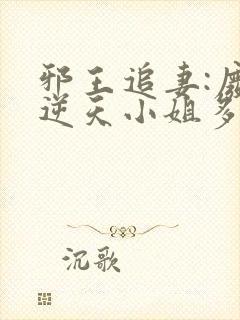 邪王追妻:
逆天小姐
沉歌